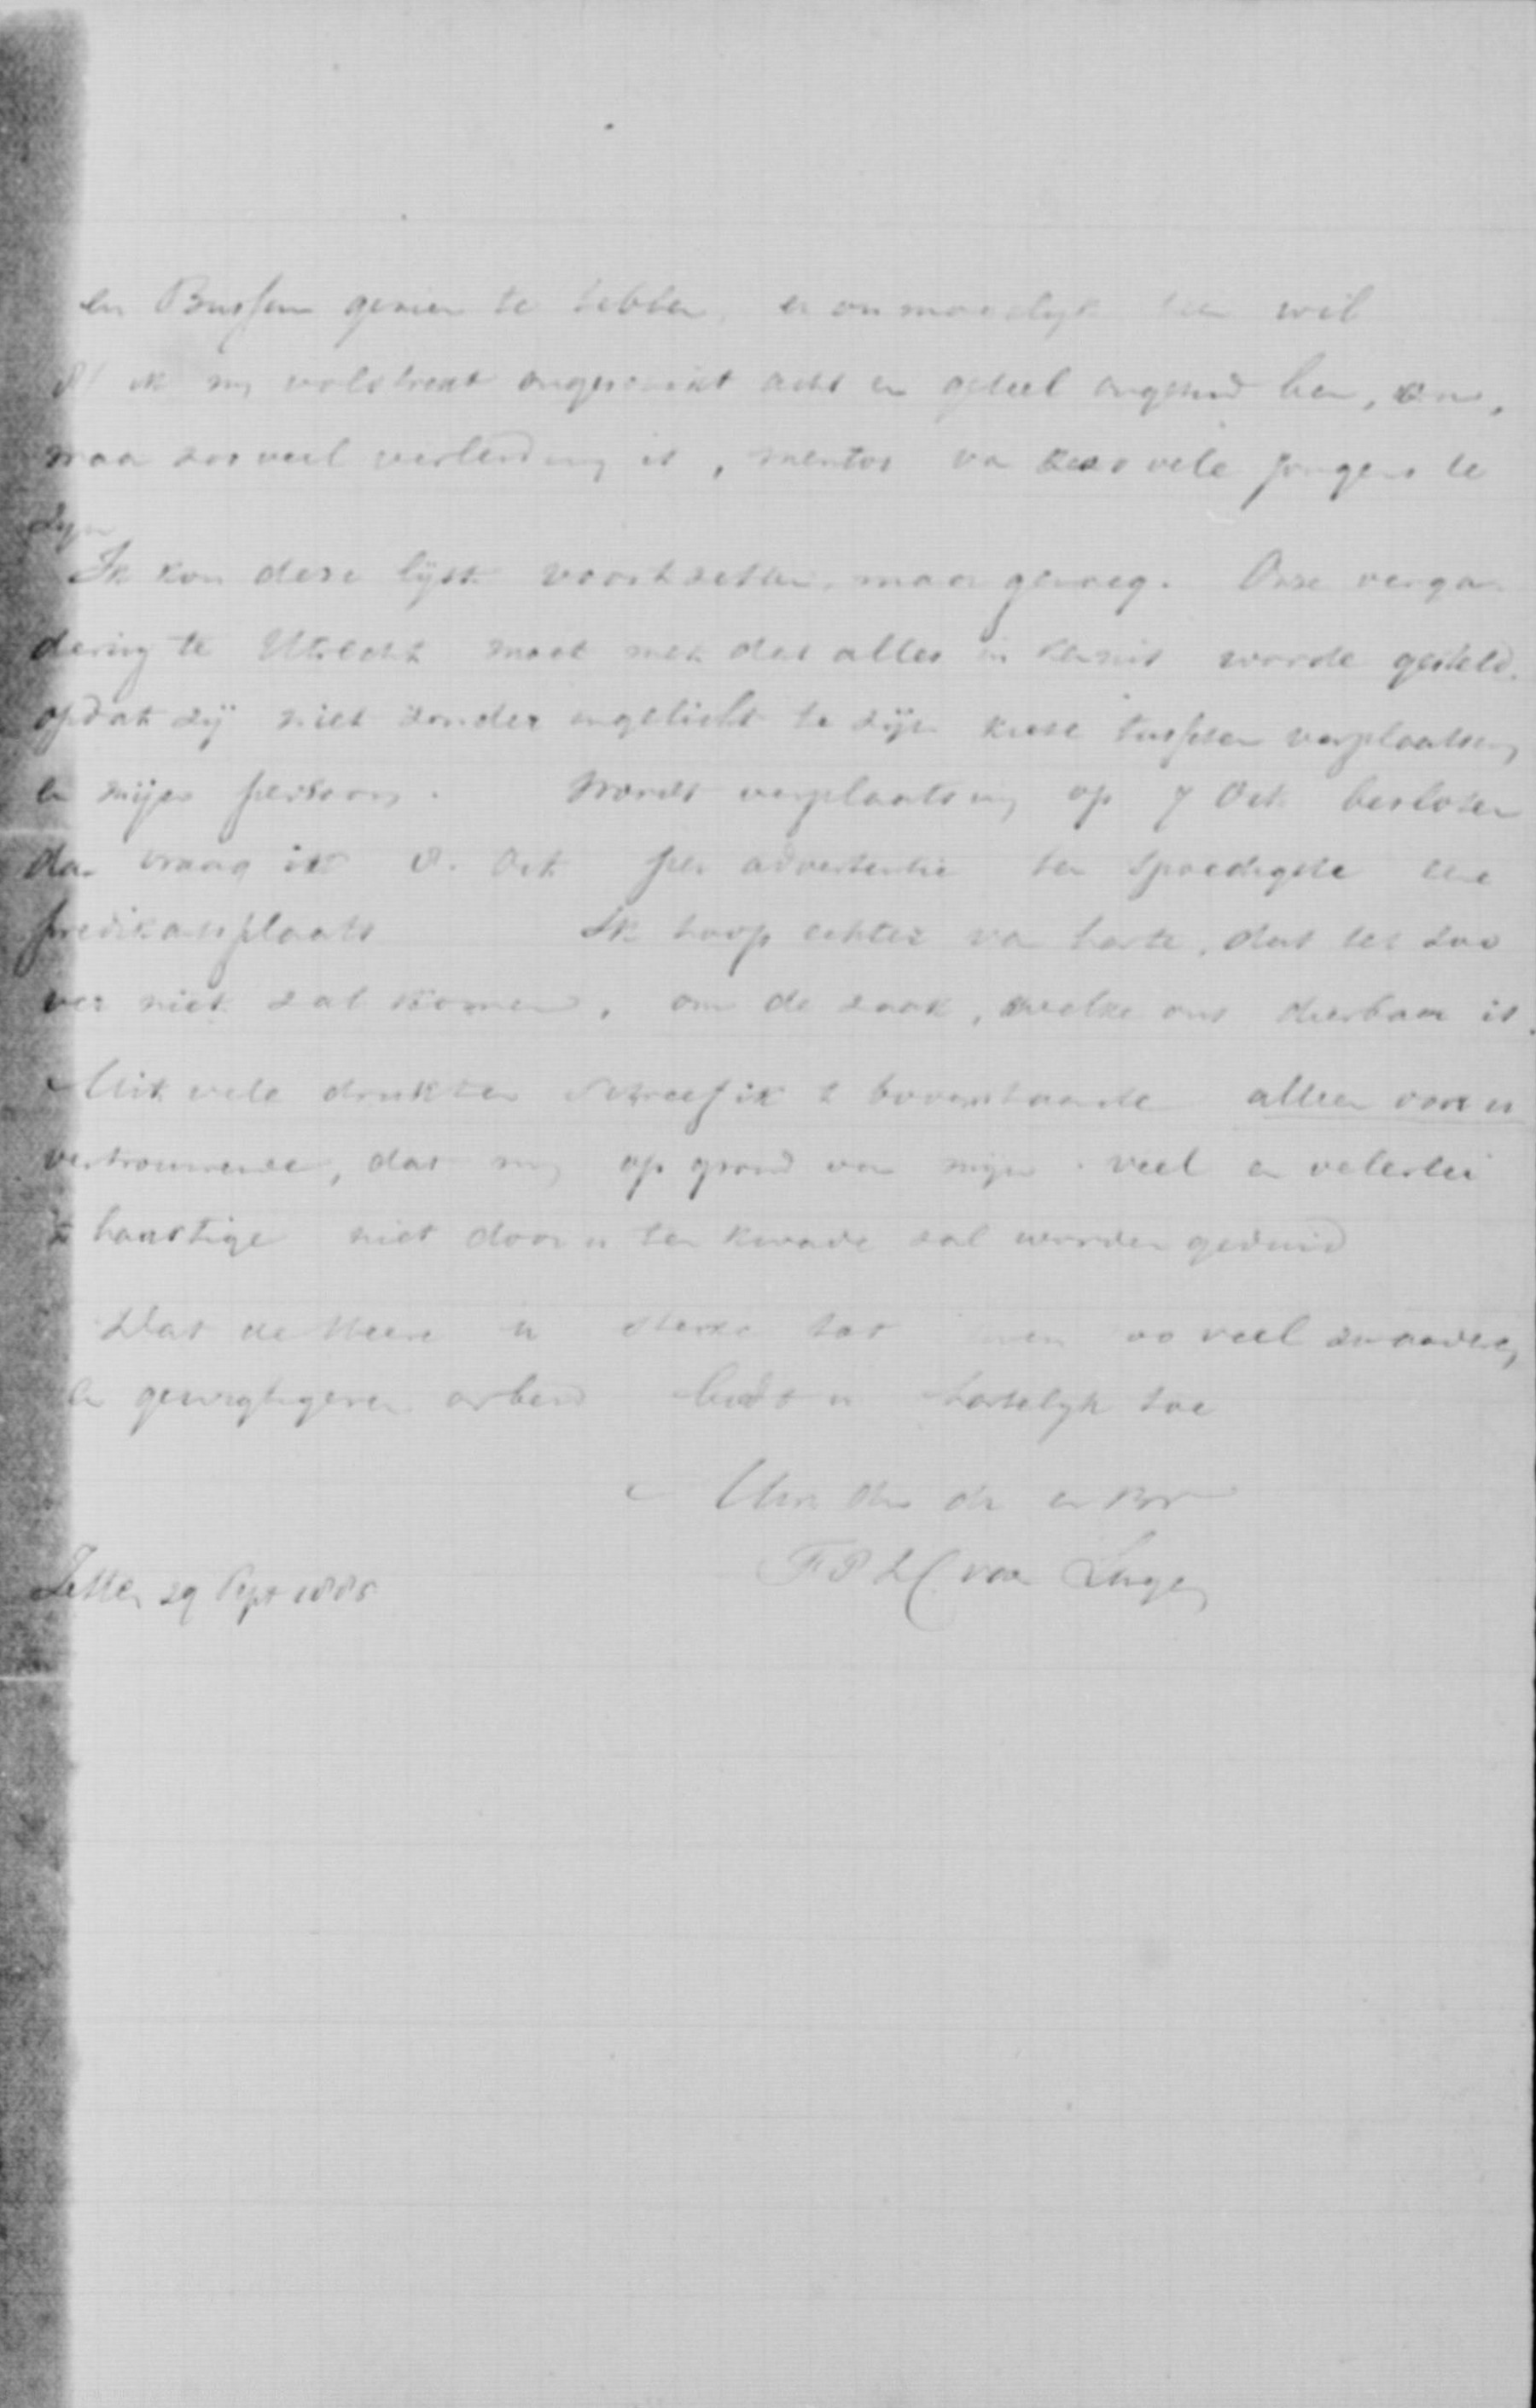 en Bussum gezien te hebben, en onmoogelijk heen wil
ik mij volstrekt ongeschikt acht en geheel ongezind ben, om,
waar zooveel verleiding is, mentor van zoo vele jongens te
zijn
Ik kon deze lijst voortzetten, maar genoeg. Onze verga-
dering te Utrecht moet met dat alles in kennis worde gesteld,
opdat zij niet zonder ingelicht te zijn kieze tusschen verplaatsing
en mijn persoon. Wordt verplaatsing op 7 Oct. besloten
dan vraag ik 8. Oct per advertentie ten spoedigste eene
predikantsplaats Ik hoop echter van harte, dat het zoo
ver niet zal komen, om de zaak, welke ons dierbaar is.
Uit vele drukten schreef ik 't bovenstaande alleen voor u
vertrouwende, dat mij op grond van mijn veel en velerlei
't haastige niet door u ten kwade zal worden geduid
Dat de Heere u sterke tot zoo veel zwaarder,
en gewigtigeren arbeid bidt u hartelijk toe
Uw en Br
F P L C van Lingen
Zetten 29 Sept 1885